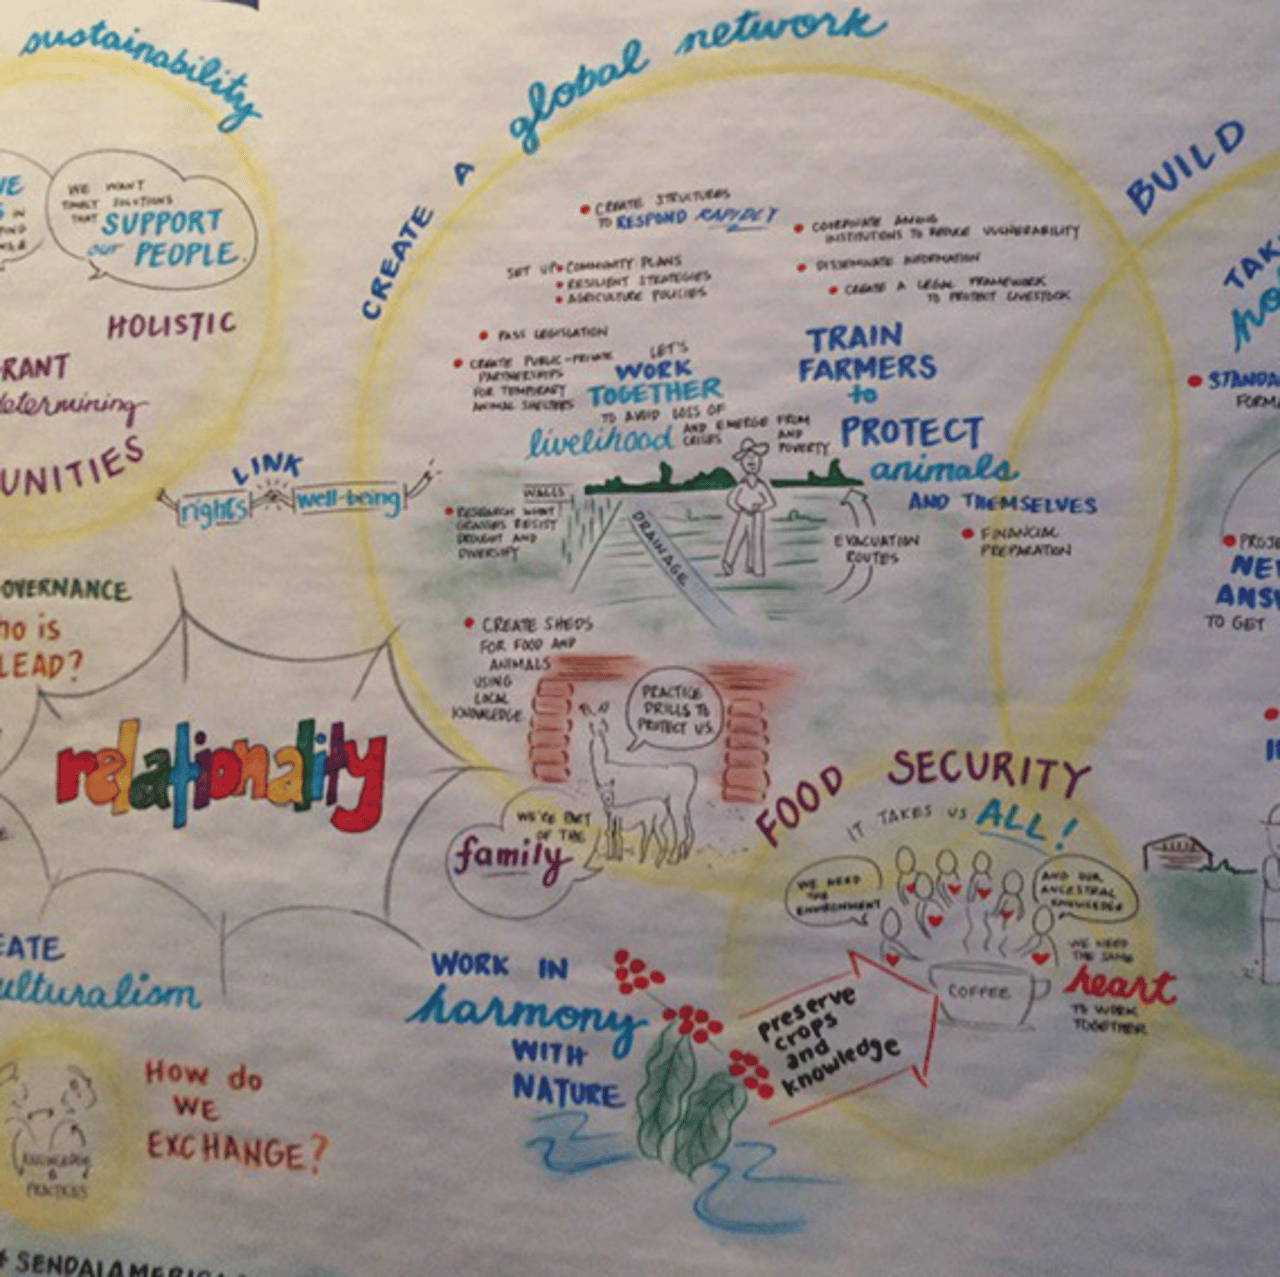 sustainability
WE WANT
SOLUTIONS
THAT SUPPORT
our PEOPLE.
HOLISTIC
RANT
determining
UNITIES
LINK
rights
well-being
OVERNANCE
ho is
LEAD?
relationality
EATE
ulturalism
How do
WE
EXCHANGE?
KNOWLEDGE
&
PRACTICES
# SENDAIAMERICA
CREATE A global network
CREATE STRUCTURES
TO RESPOND RAPIDLY
COORDINATE AMONG
INSTITUTIONS TO REDUCE VULNERABILITY
DISSEMINATE INFORMATION
CREATE A LEGAL FRAMEWORK
TO PROTECT LIVESTOCK
SET UP • COMMUNITY PLANS
• RESILIENT STRATEGIES
• AGRICULTURE POLICIES
• PASS LEGISLATION
• CREATE PUBLIC-PRIVATE
PARTNERSHIPS
FOR TEMPORARY
ANIMAL SHELTERS
LET'S
WORK
TOGETHER
TO AVOID LOSS OF
livelihood
AND EMERGE FROM
CRISES
AND
POVERTY
TRAIN
FARMERS
to
PROTECT
animals
AND THEMSELVES
• FINANCIAL
PREPARATION
WALLS
• RESEARCH WHAT
GRASSES RESIST
DROUGHT AND
DIVERSIFY
DRAINAGE
EVACUATION
ROUTES
• CREATE SHEDS
FOR FOOD AND
ANIMALS
USING
LOCAL
KNOWLEDGE
PRACTICE
DRILLS TO
PROTECT US.
WE'RE PART
OF THE
family
FOOD SECURITY
IT TAKES US ALL!
WE NEED
THE
ENVIRONMENT
AND OUR
ANCESTRAL
KNOWLEDGE
WE NEED
THE SAME
heart
TO WORK
TOGETHER
COFFEE
preserve
crops
and
knowledge
WORK IN
harmony
WITH
NATURE
BUILD
TAK
• STANDA
FORMA
• PROJE
NEW
ANSW
TO GET